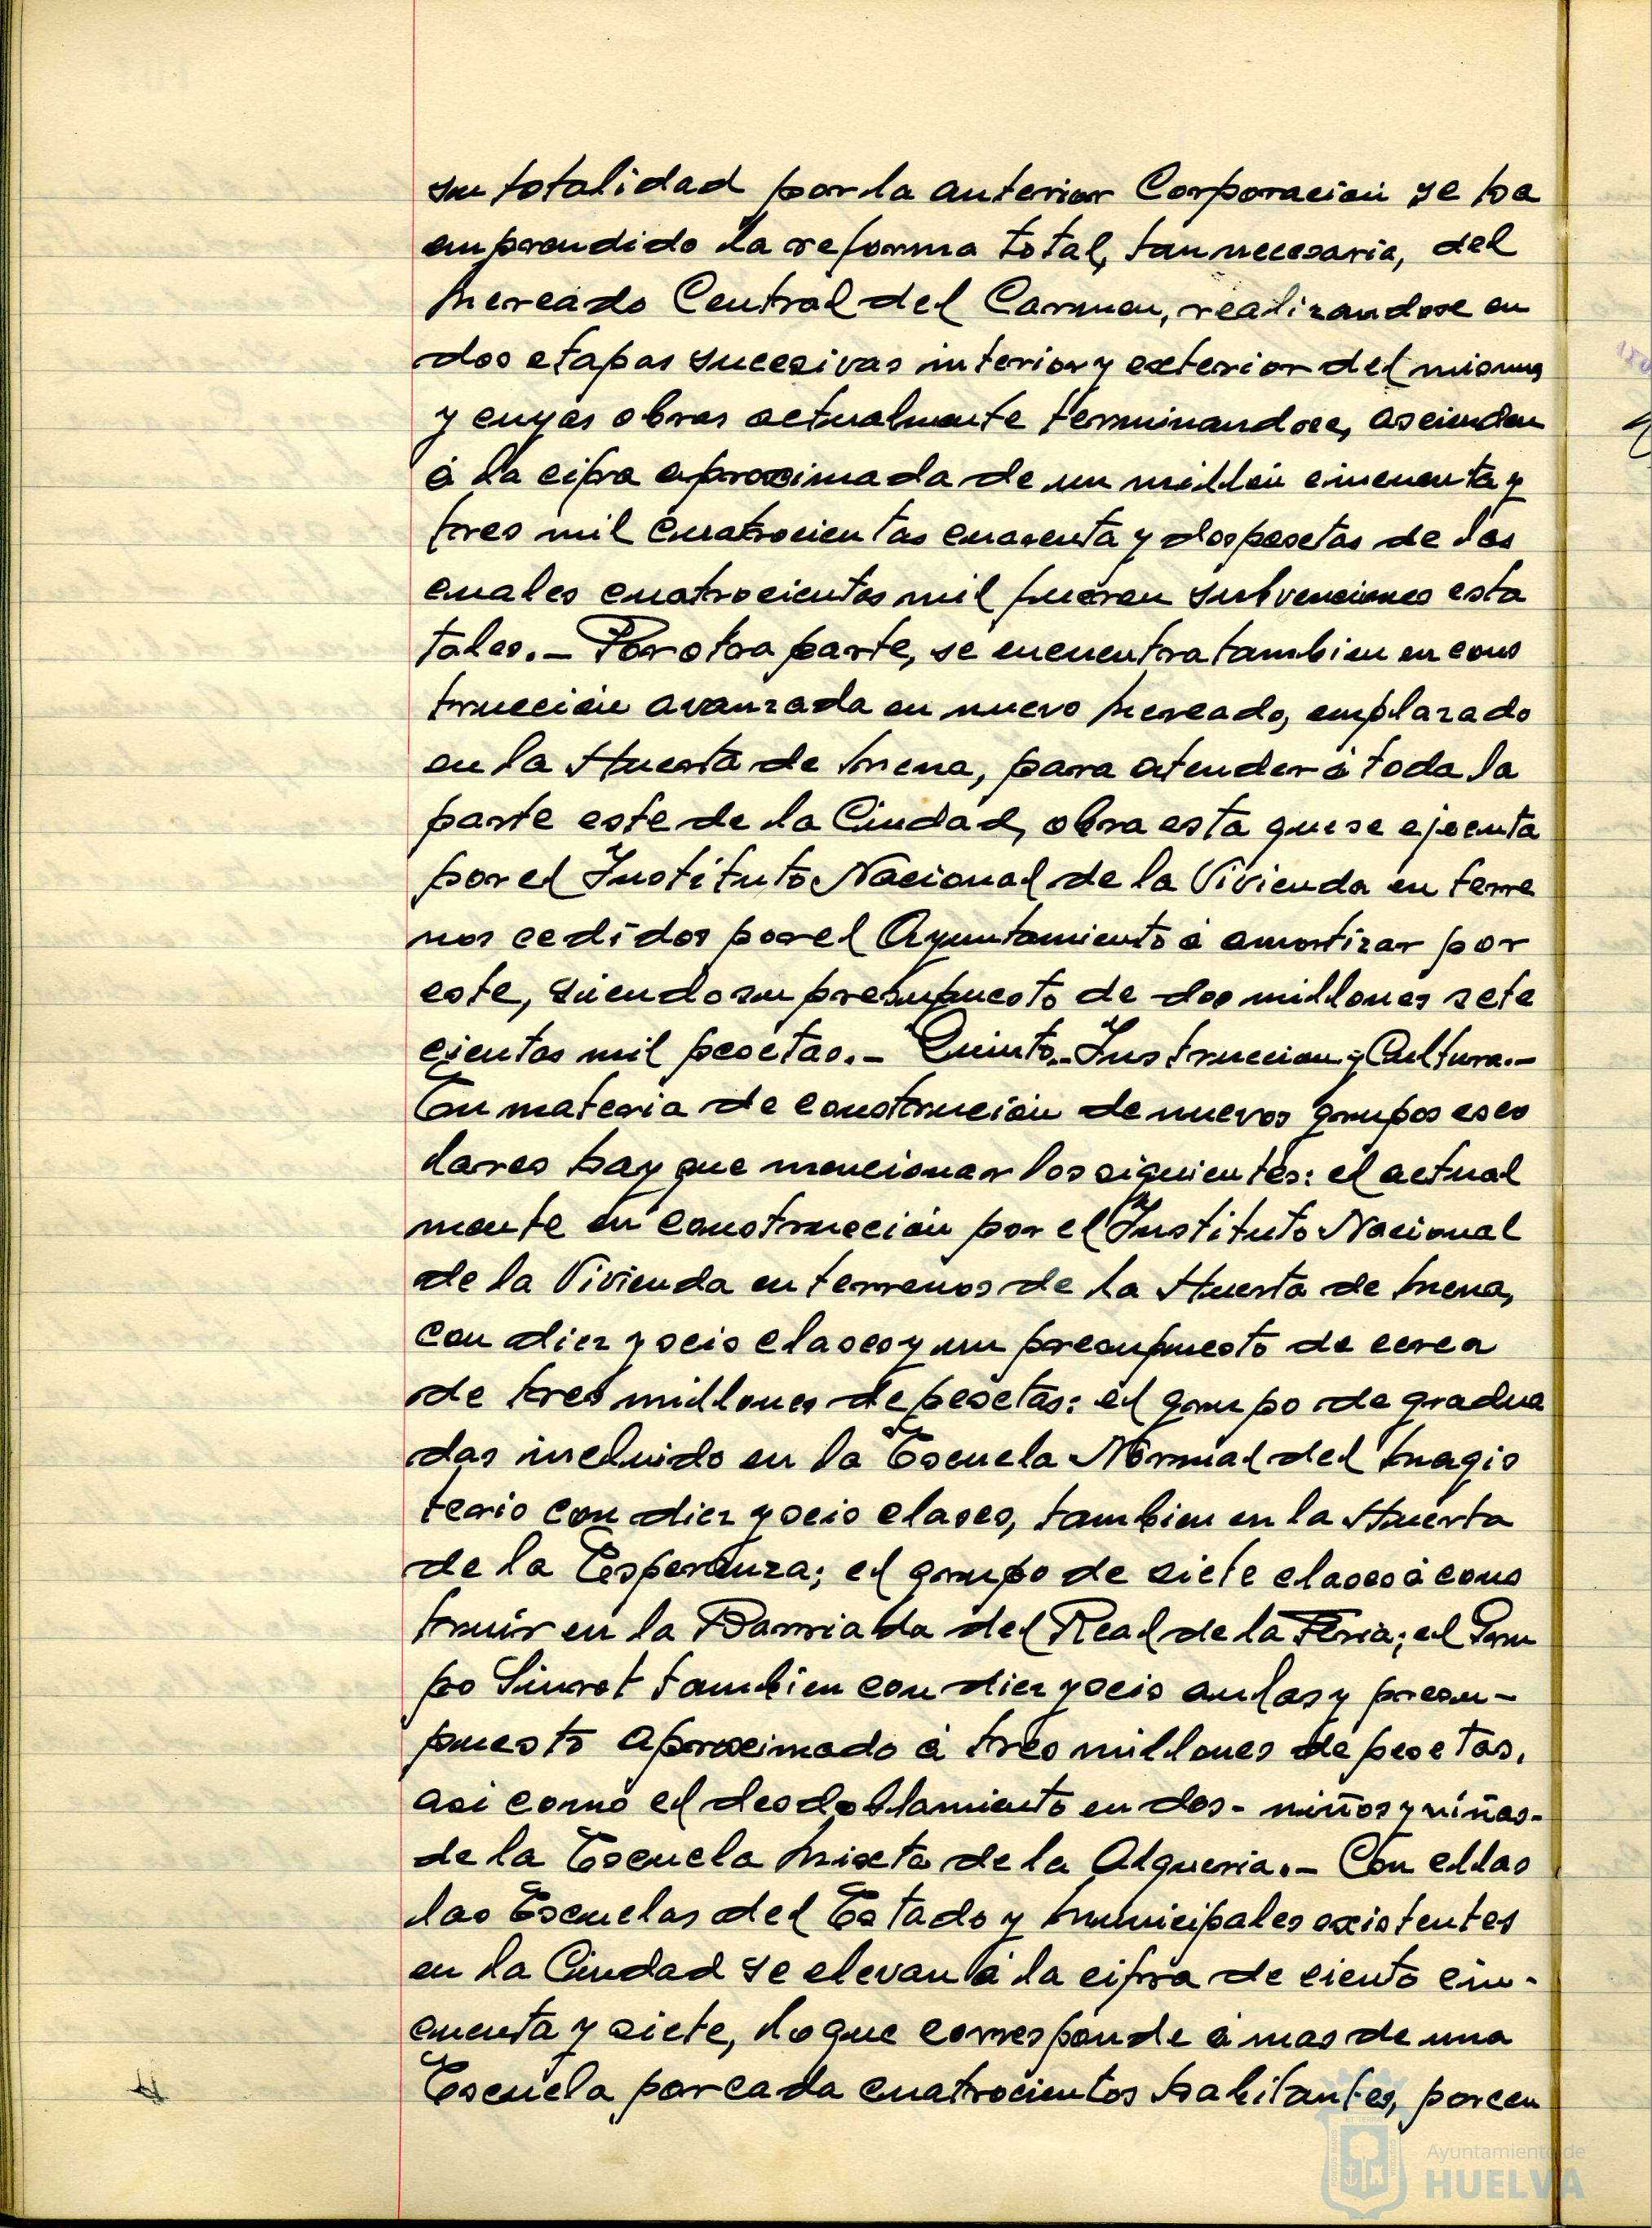 su totalidad por la anterior Corporación se ha
emprendido la reforma total, tan necesaria, del
Mercado Central del Carmen, realizandose en
dos etapas sucesivas interior y exterior del mismo
y cuyas obras actualmente terminandose, ascienden
á la cifra aproximada de un millón cincuenta y
tres mil cuatrocientas cuarenta y dos pesetas de las
cuales cuatrocientas mil fueron subvenciones esta
tales.- Por otra parte, se encuentra tambien en cons
trucción avanzada un nuevo Mercado, emplazado
en la Huerta de Mena, para atender á toda la
parte este de la Ciudad, obra esta que se ejecuta
por el Instituto Nacional de la Vivienda en terre
nos cedidos por el Ayuntamiento á amortizar por
este, siendo su presupuesto de dos millones sete
cientas mil pesetas.- Quinto.- Instruccion y Cultura.-
En materia de construción de nuevos grupos esco
lares hay que mencionar los siguientes: el actual
mente en construcción por el Instituto Nacional
de la Vivienda en terrenos de la Huerta de Mena,
con diez y seis clases y un presupuesto de cerca
de tres millones de pesetas: el grupo de gradua
das incluido en la Escuela Normal del Magis
terio con diez y seis clases, tambien en la Huerta
de la Esperanza; el grupo de siete clases á cons
truir en la Barriada del Real de la Feria; el Gru
po Siurot tambien con diez y seis aulas y presu-
puesto aproximado á tres millones de pesetas,
asi como el desdoblamiento en dos - niños y niñas -
de la Escuela Mixta de la Alqueria.- Con ellas
las Escuelas del Estado y Municipales existentes
en la Ciudad se elevan á la cifra de ciento cin-
cuenta y siete, lo que corresponde á mas de una
Escuela por cada cuatrocientos habitantes, porcen
Ayuntamiento de
HUELVA